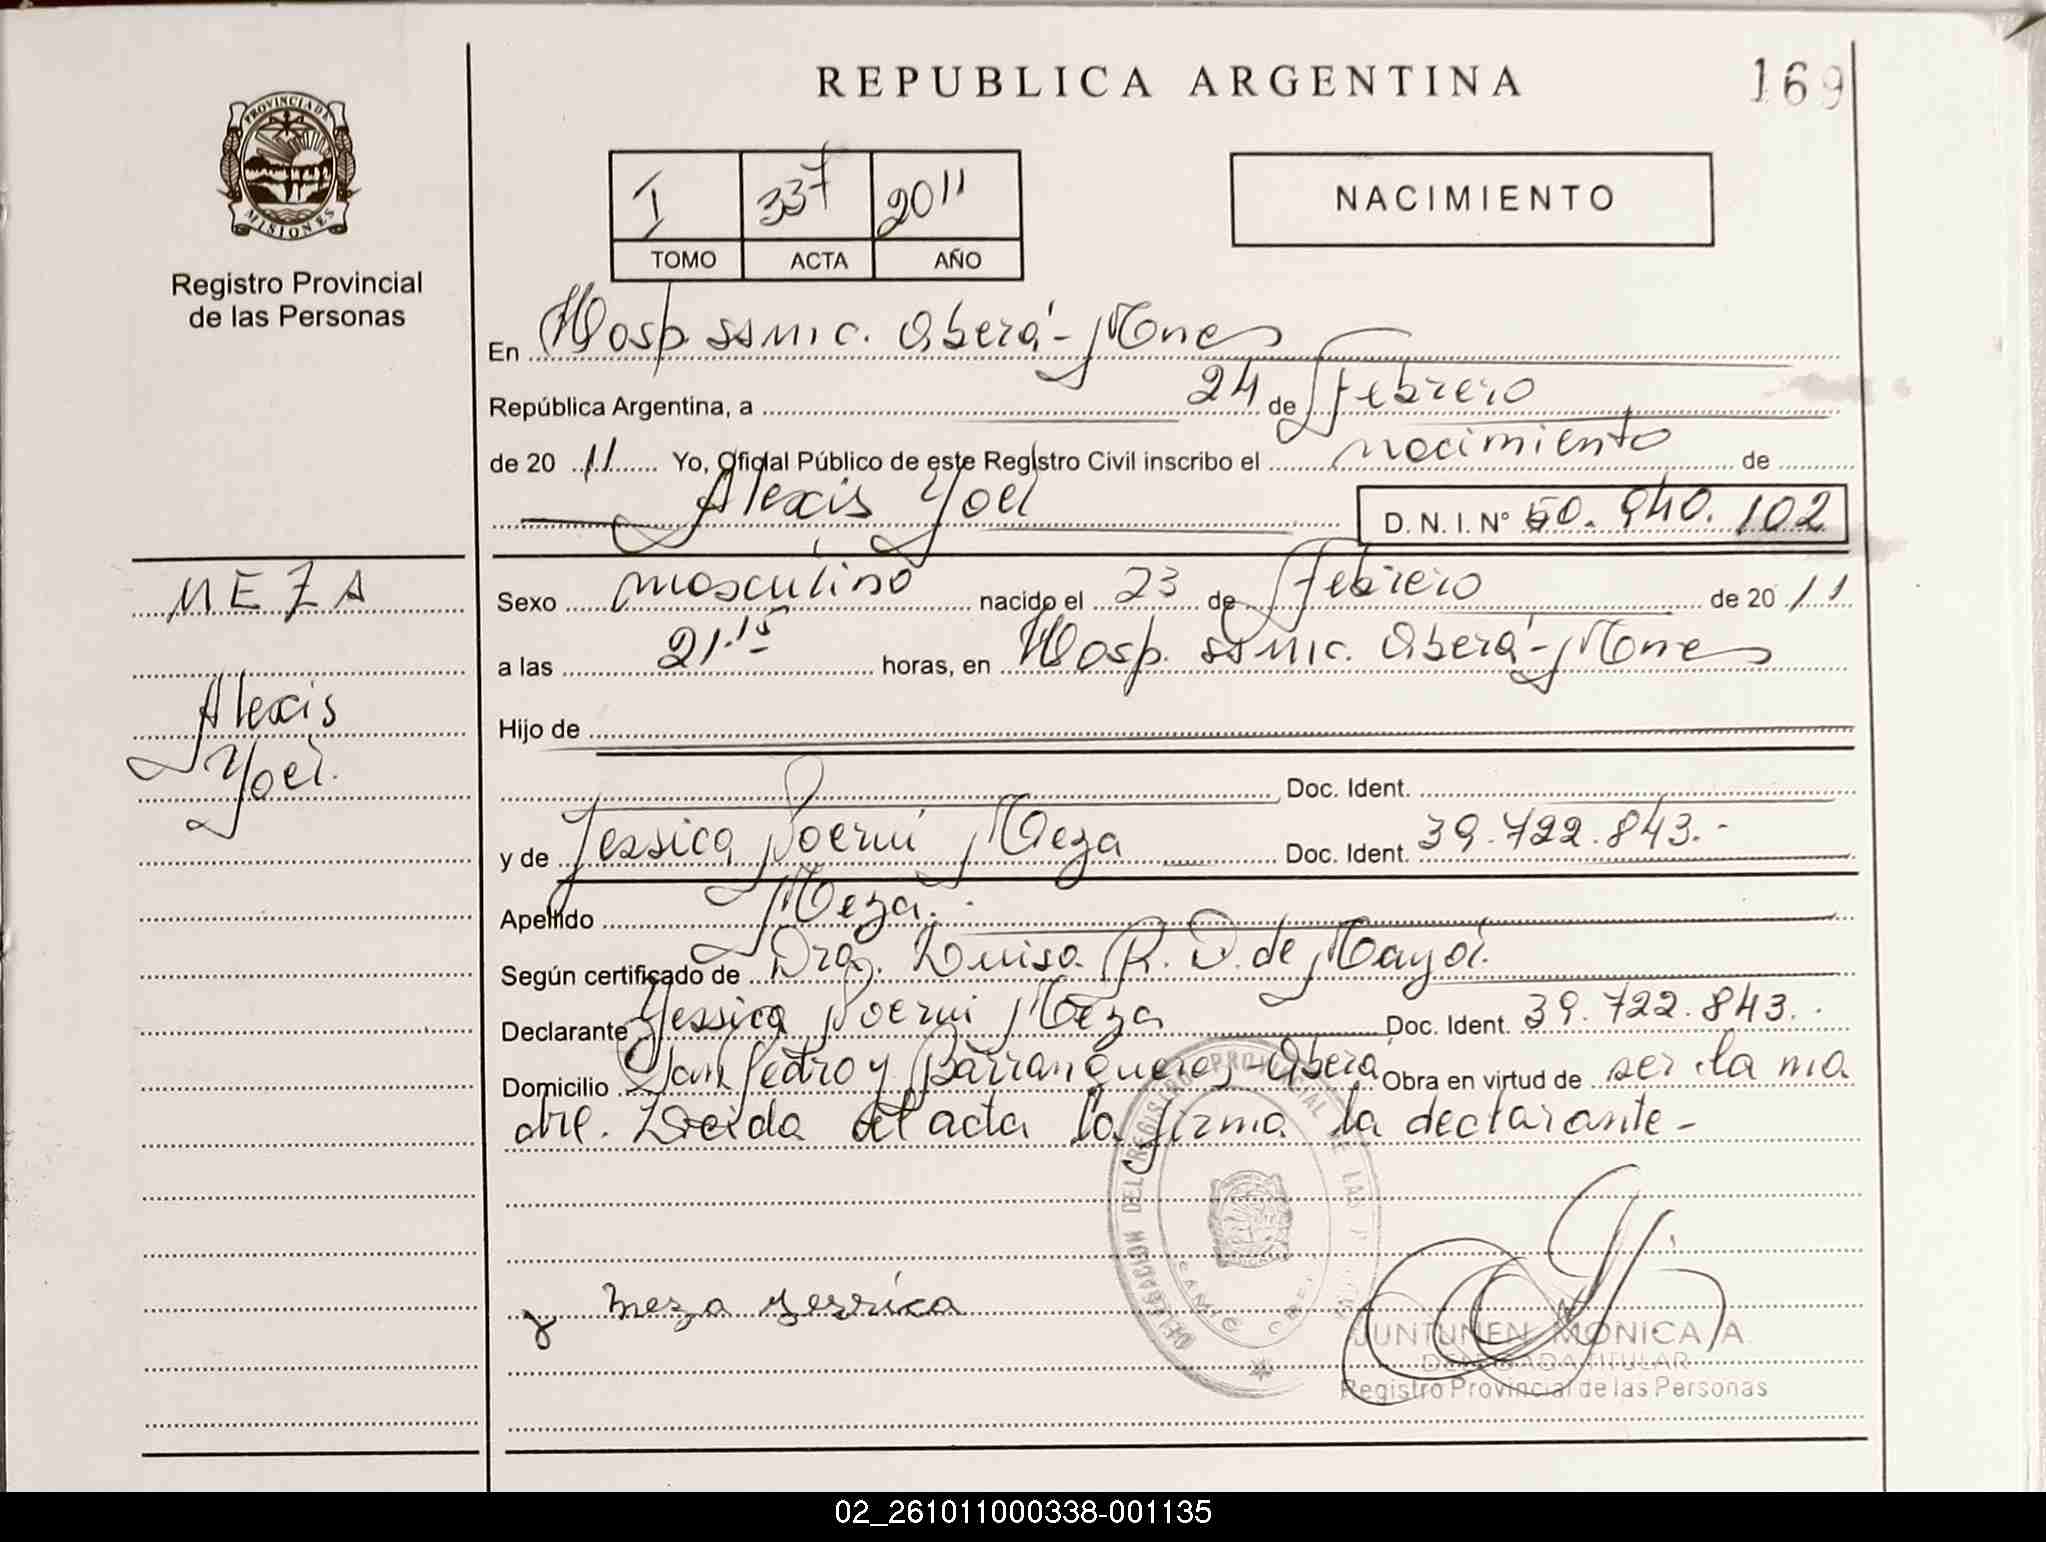 REPUBLICA ARGENTINA
169
PROVINCIA DE
MISIONES
Registro Provincial
de las Personas
I 337 2011
TOMO ACTA AÑO
NACIMIENTO
En Hosp. SSMIC. Oberá - Mnes
República Argentina, a 24 de Febrero
de 2011 Yo, Oficial Público de este Registro Civil inscribo el nacimiento de
Alexis Yoel D. N. I. N° 50.940.102
MEZA
Alexis
Yoel.
Sexo masculino nacido el 23 de Febrero de 2011
a las 21.15 horas, en Hosp. SSMIC. Oberá - Mnes
Hijo de
Doc. Ident.
y de Yessica Noemi Meza Doc. Ident. 39.722.843.-
Apellido Meza.-
Según certificado de Dra. Luisa R. D. de Mayol.
Declarante Yessica Noemi Meza Doc. Ident. 39.722.843.-
Domicilio San Pedro y Barranqueras - Oberá Obra en virtud de ser la ma
dre. Leida el acta la firma la declarante -
Meza Yessica
DELEGACION DEL REGISTRO PROVINCIAL DE LAS
JUNTUNEN MONICA A.
DELEGADA TITULAR
Registro Provincial de las Personas
02_261011000338-001135